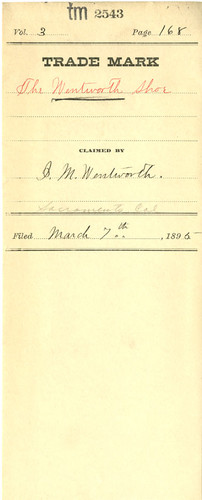 tm 2543
Vol. 3 Page 168
TRADE MARK
The Wentworth Shoe
CLAIMED BY
I. M. Wentworth.
Sacramento Cal
Filed March 7th, 1895